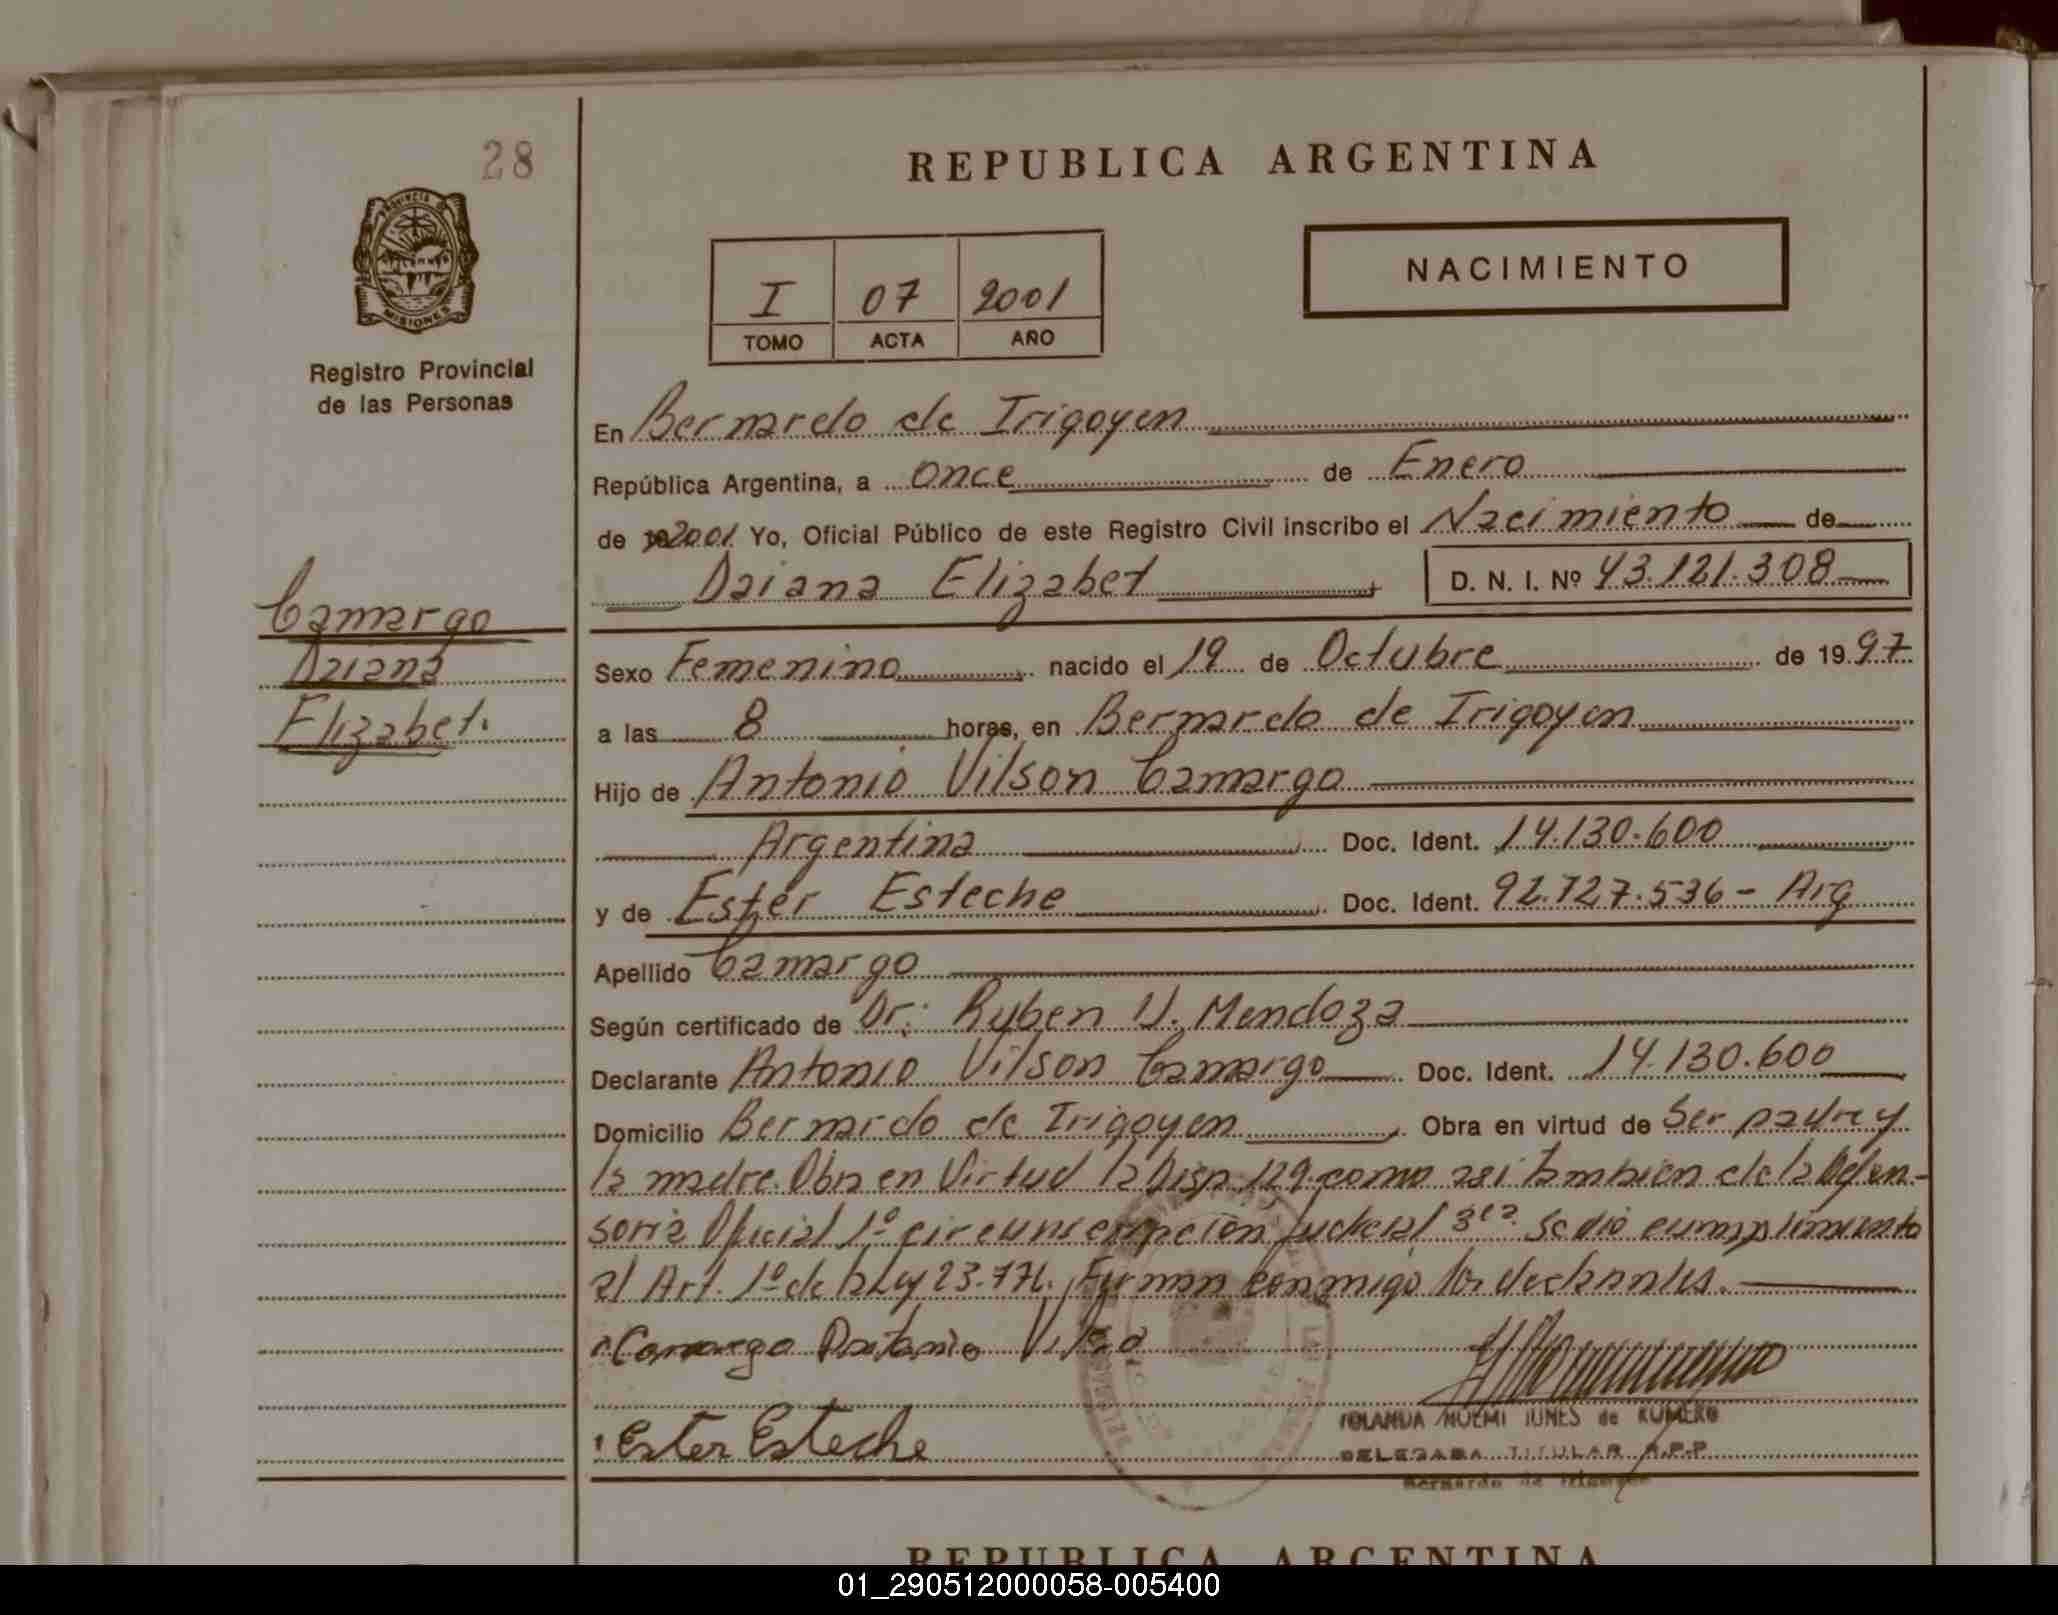 28
REPUBLICA ARGENTINA
PROVINCIA DE
MISIONES
Registro Provincial
de las Personas
NACIMIENTO
I 07 2001
TOMO ACTA AÑO
En Bernardo de Irigoyen
República Argentina, a once de Enero
de 2001 Yo, Oficial Público de este Registro Civil inscribo el Nacimiento de
Daiana Elizabet D. N. I. Nº 43.121.308
Camargo
Daiana
Elizabet.
Sexo Femenino nacido el 19 de Octubre de 1997
a las 8 horas, en Bernardo de Irigoyen
Hijo de Antonio Vilson Camargo
Argentina Doc. Ident. 14.130.600
y de Ester Esteche Doc. Ident. 92.727.536- Arg
Apellido Camargo
Según certificado de Dr: Ruben Mendoza
Declarante Antonio Vilson Camargo Doc. Ident. 14.130.600
Domicilio Bernardo de Irigoyen Obra en virtud de Ser padre y
la madre. Obra en Virtud la Disp. 129. como asi tambien de la Defen-
soria Oficial 1º circunscripcion Judicial 3ra. Se dio cumplimiento
al Art. 1º de la Ley 23.776. Firman conmigo los declarantes.
Camargo Antonio
Ester Esteche
YOLANDA NOEMI de ROMERO
DELEGADA TITULAR R.P.P
Bernardo de Irigoyen
REPUBLICA ARGENTINA
01_290512000058-005400